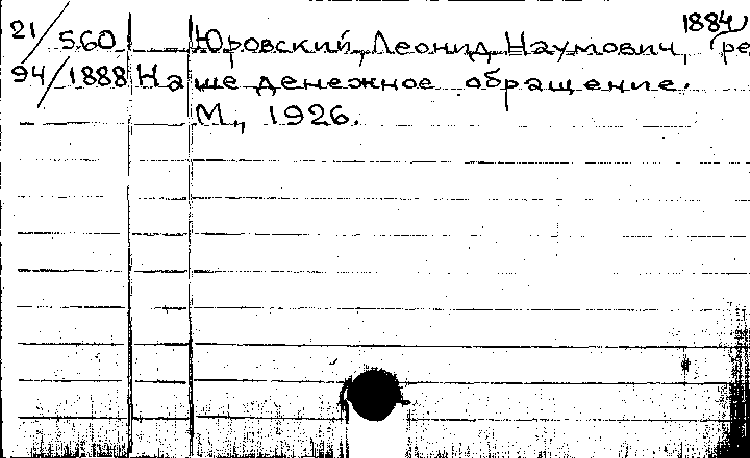 21/560 Юровский, Леонид Наумович, 1884 ре
94/1888 Наше денежное обращение.
М., 1926.